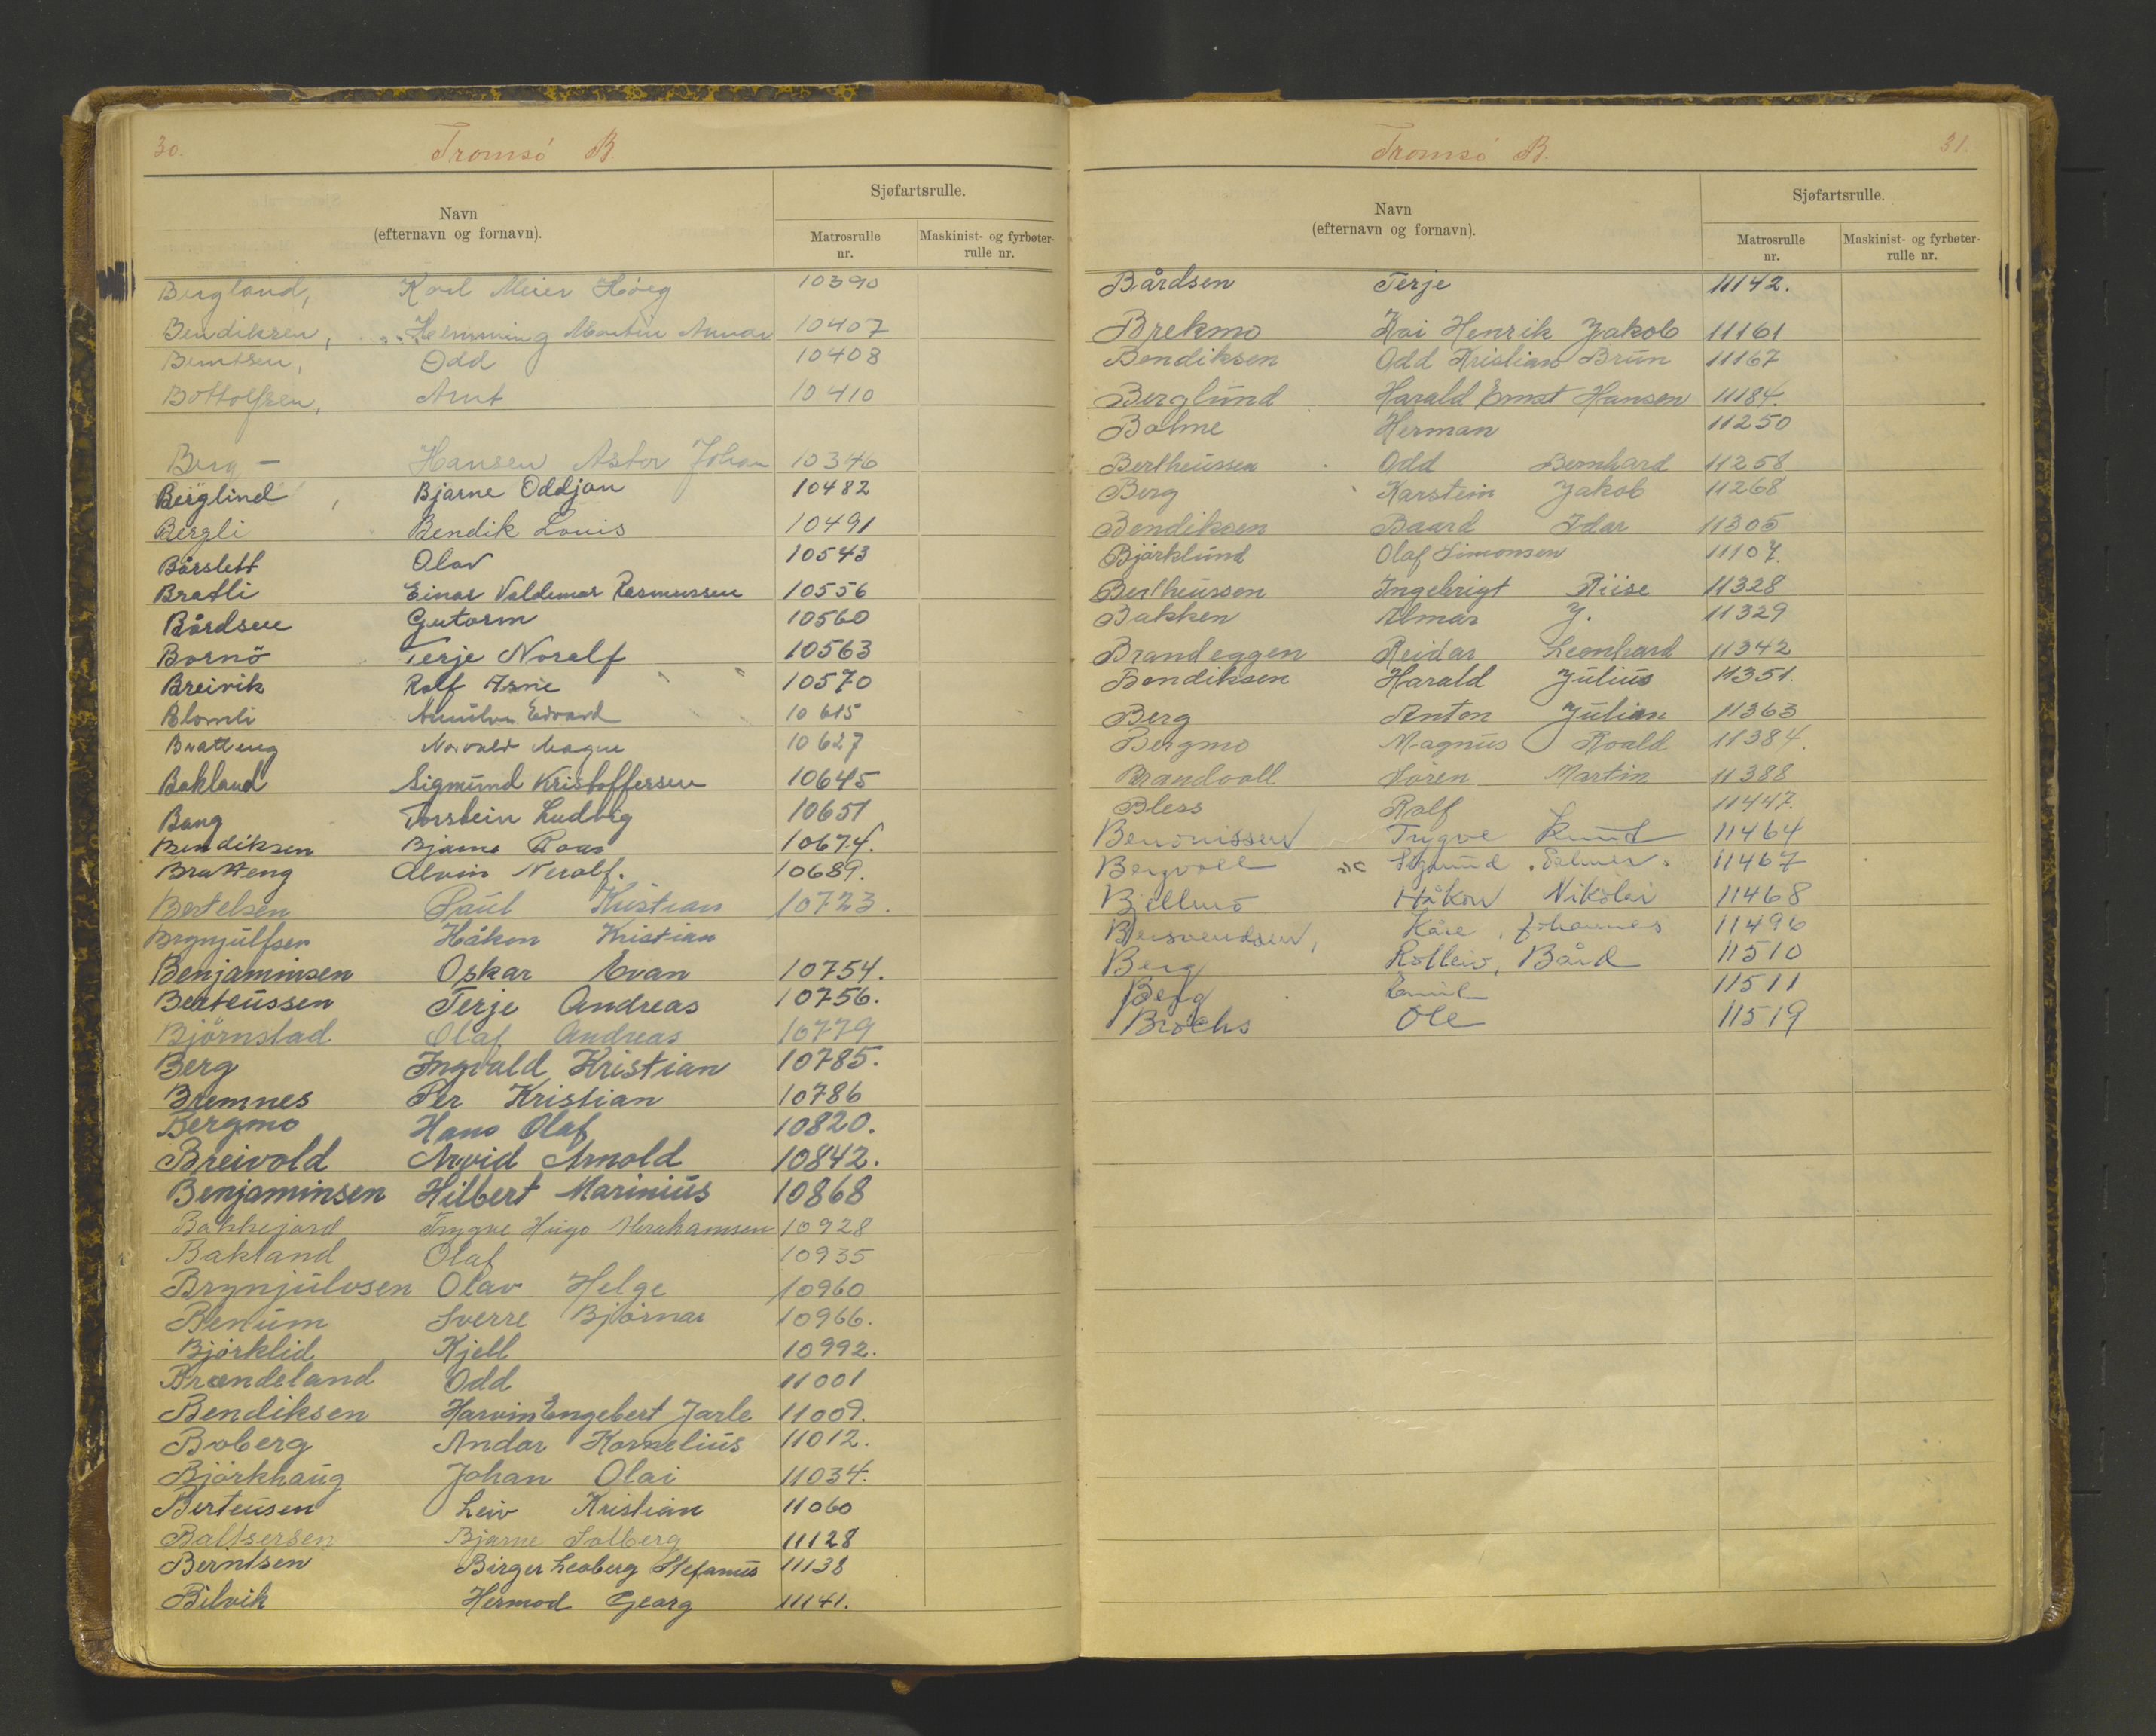 30.
Tromsø B.
Navn
(efternavn og fornavn).
Sjøfartsrulle.
Matrosrulle
nr.
Maskinist- og fyrbøter-
rulle nr.
Bergland, Karl Meier Høeg 10390
Bendiksen, Hemming Martin Annar 10407
Berntsen, Odd 10408
Bottolfsen, Arnt 10410
Berg - Hansen Astor Johan 10346
Berglind, Bjarne Oddjan 10482
Bergli Bendik Louis 10491
Bårslett Olav 10543
Bratli Einar Valdemar Rasmussen 10556
Bårdsen Gutorm 10560
Bornö Terje Noralf 10563
Breivik Rolf Arne 10570
Blomli Edvard 10615
Bratteng Norvald Magne 10627
Bakland Sigmund Kristoffersen 10645
Bang Torstein Ludvig 10651
Bendiksen Bjarne Roar 10674.
Bratteng Alvin Neralf. 10689.
Bertelsen Paul Kristian 10723.
Brynjulfsen Håkon Kristian
Benjaminsen Oskar Evan 10754.
Berteussen Terje Andreas 10756.
Björnstad Olaf Andreas 10779
Berg Ingvald Kristian 10785.
Bremnes Per Kristian 10786
Bergmo Hans Olaf 10820.
Breivold Arvid Arnold 10842.
Benjaminsen Hilbert Marinius 10868
Bakkejord Trygve Hugo Abrahamsen 10928
Bakland Olaf 10935
Brynjulvsen Olav Helge 10960
Benum Sverre Björnar 10966.
Björklid Kjell 10992.
Brændeland Odd 11001
Bendiksen Harvin Engebert Jarle 11009.
Boberg Andor Kornelius 11012.
Björkhaug Johan Olai 11034.
Berteusen Leiv Kristian 11060
Baltsersen Bjarne Solberg 11128
Berntsen Birger Leoberg Stefanus 11138
Bilvik Hermod Georg 11141.
Tromsø B.
31.
Navn
(efternavn og fornavn).
Sjøfartsrulle.
Matrosrulle
nr.
Maskinist- og fyrbøter-
rulle nr.
Bårdsen Terje 11142.
Brekmo Kai Henrik Jakob 11161
Bendiksen Odd Kristian Brun 11167
Berglund Harald Ernst Hansen 11184.
Bolme Herman 11250
Bertheussen Odd Bernhard 11258
Berg Karstein Jakob 11268
Bendiksen Baard Idar 11305
Björklund Olaf Simonsen 11107.
Bertheussen Ingebrigt Riise 11328
Bakken Almar J. 11329
Brandeggen Reidar Leonhard 11342
Bendiksen Harald Julius 11351.
Berg Anton Julian 11363
Bergmo Magnus Roald 11384.
Brandvoll Sören Martin 11388
Bless Rolf 11447.
Benonissen Trygve Knud 11464
Bergvoll Sigmund Selmer 11467
Bjellmo Håkon Nikolai 11468
Kåre Johannes 11496
Berg Rolleiv, Bård 11510
Berg Emil 11511
Brochs Ole 11519